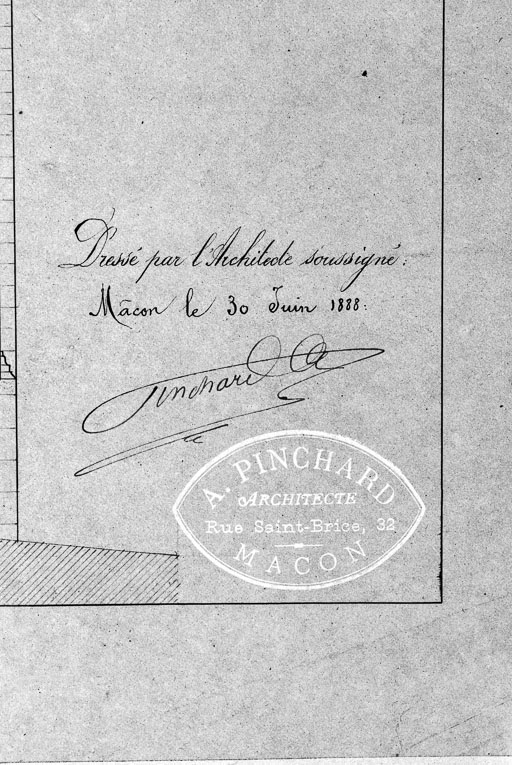 Dressé par l'Architecte soussigné:
Mâcon le 30 Juin 1888.
Pinchard A
A. PINCHARD
ARCHITECTE
Rue Saint-Brice, 32
MACON